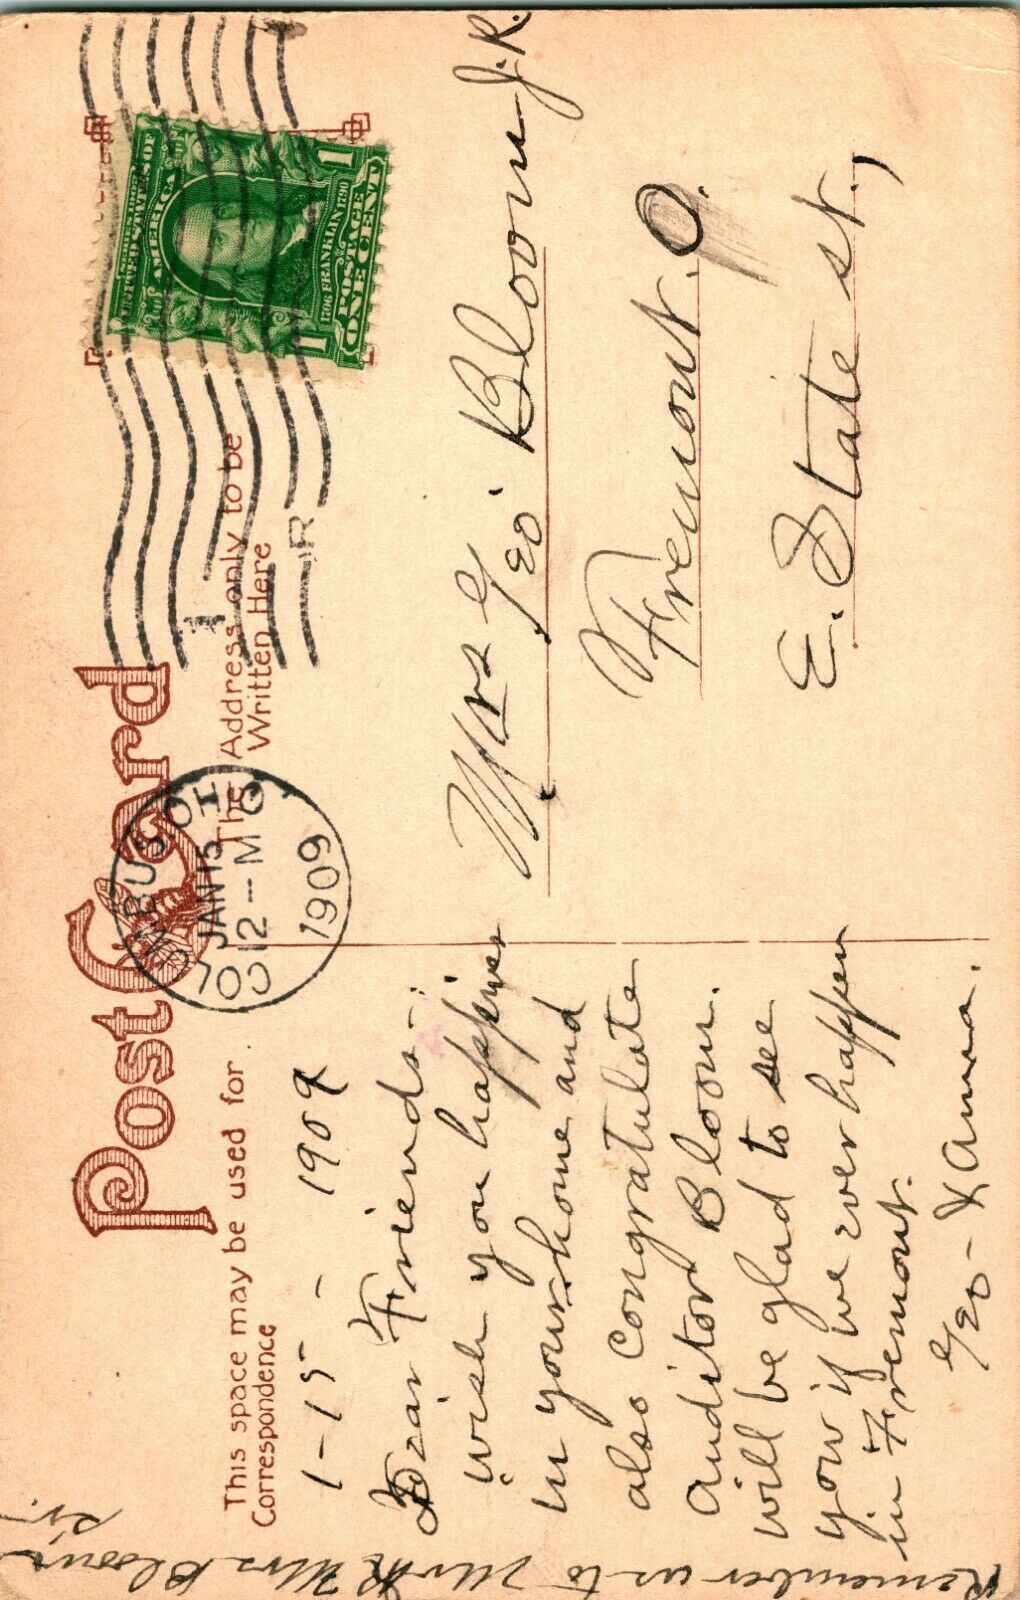 Post Card
This space may be used for
Correspondence
The Address only to be
Written Here
COLUMBUS, OHIO
JAN 15
12-M
1909
R
UNITED STATES OF
AMERICA
1706 FRANKLIN 1790
POSTAGE
1 ONE CENT 1
1-15-1909
Dear Friends-:
wish you happiness
in your home and
also congratulate
auditor Bloom.
will be glad to see
you if we ever happen
in Fremont.
Geo- & Anna.
Remember us to Mr & Mrs Bloom
Sr.
Mrs Geo. Bloom J.R.
Fremont. O.
E. State St.,